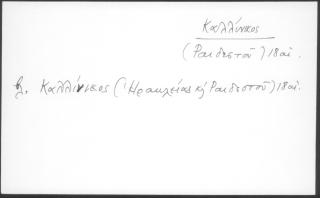 Καλλίνικος
(Ραιδεστοῦ) 18αἰ.
βλ. Καλλίνικος (Ἡρακλείας κ Ραιδεστοῦ) 18αἰ.